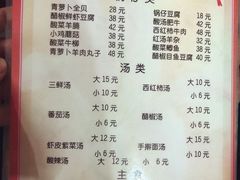 青萝卜全贝 28元 锅仔豆腐 18元
醋椒鲜虾豆腐 38元 酸汤肥牛 42元
酸菜羊腩 42元 西红柿牛肉 48元
小鸡蘑菇 42元 红汤羊杂 38元
酸菜牛柳 38元 酸菜鲫鱼 38元
青萝卜羊肉丸子 48元 醋椒目鱼豆腐 38元
汤类
三鲜汤 大 15元 西红柿汤 大 10元
小 10元 小 6元
番茄汤 大 10元 醋椒汤 大 10元
小 6元 小 6元
虾皮紫菜汤 大 12元 手擀面汤 大
小 6元 小
酸辣汤 大 12元
主食